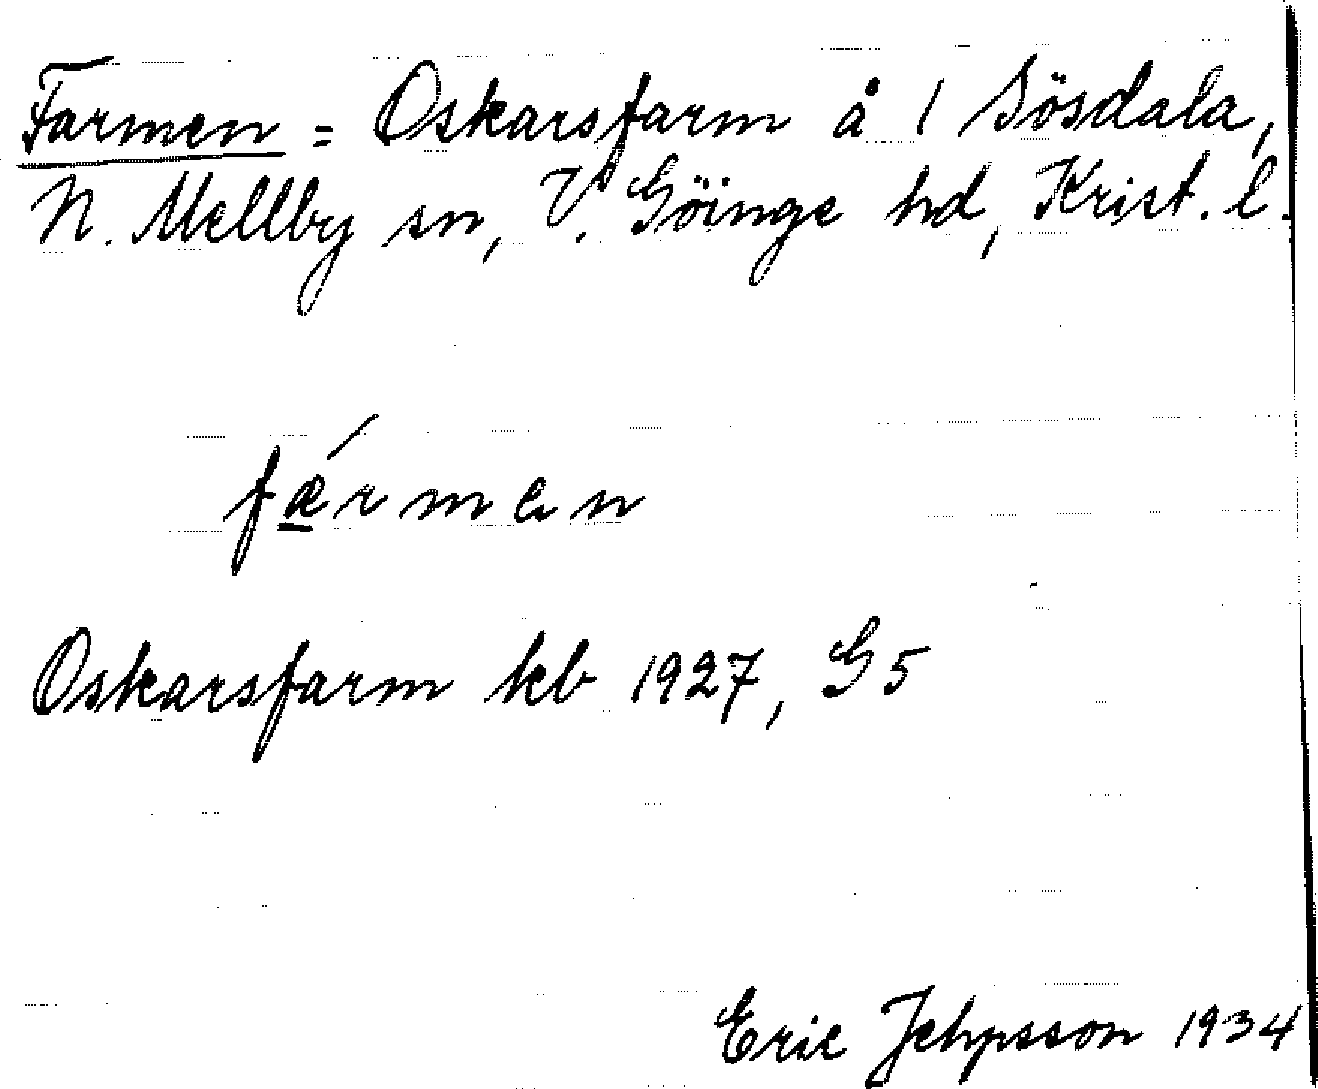 Farmen = Oskarsfarm å 1 Sösdala,
N. Mellby sn, V. Göinge hd, Krist. l.
fǽrmen
Oskarsfarm kb 1927, G5
Eric Jehpsson 1934